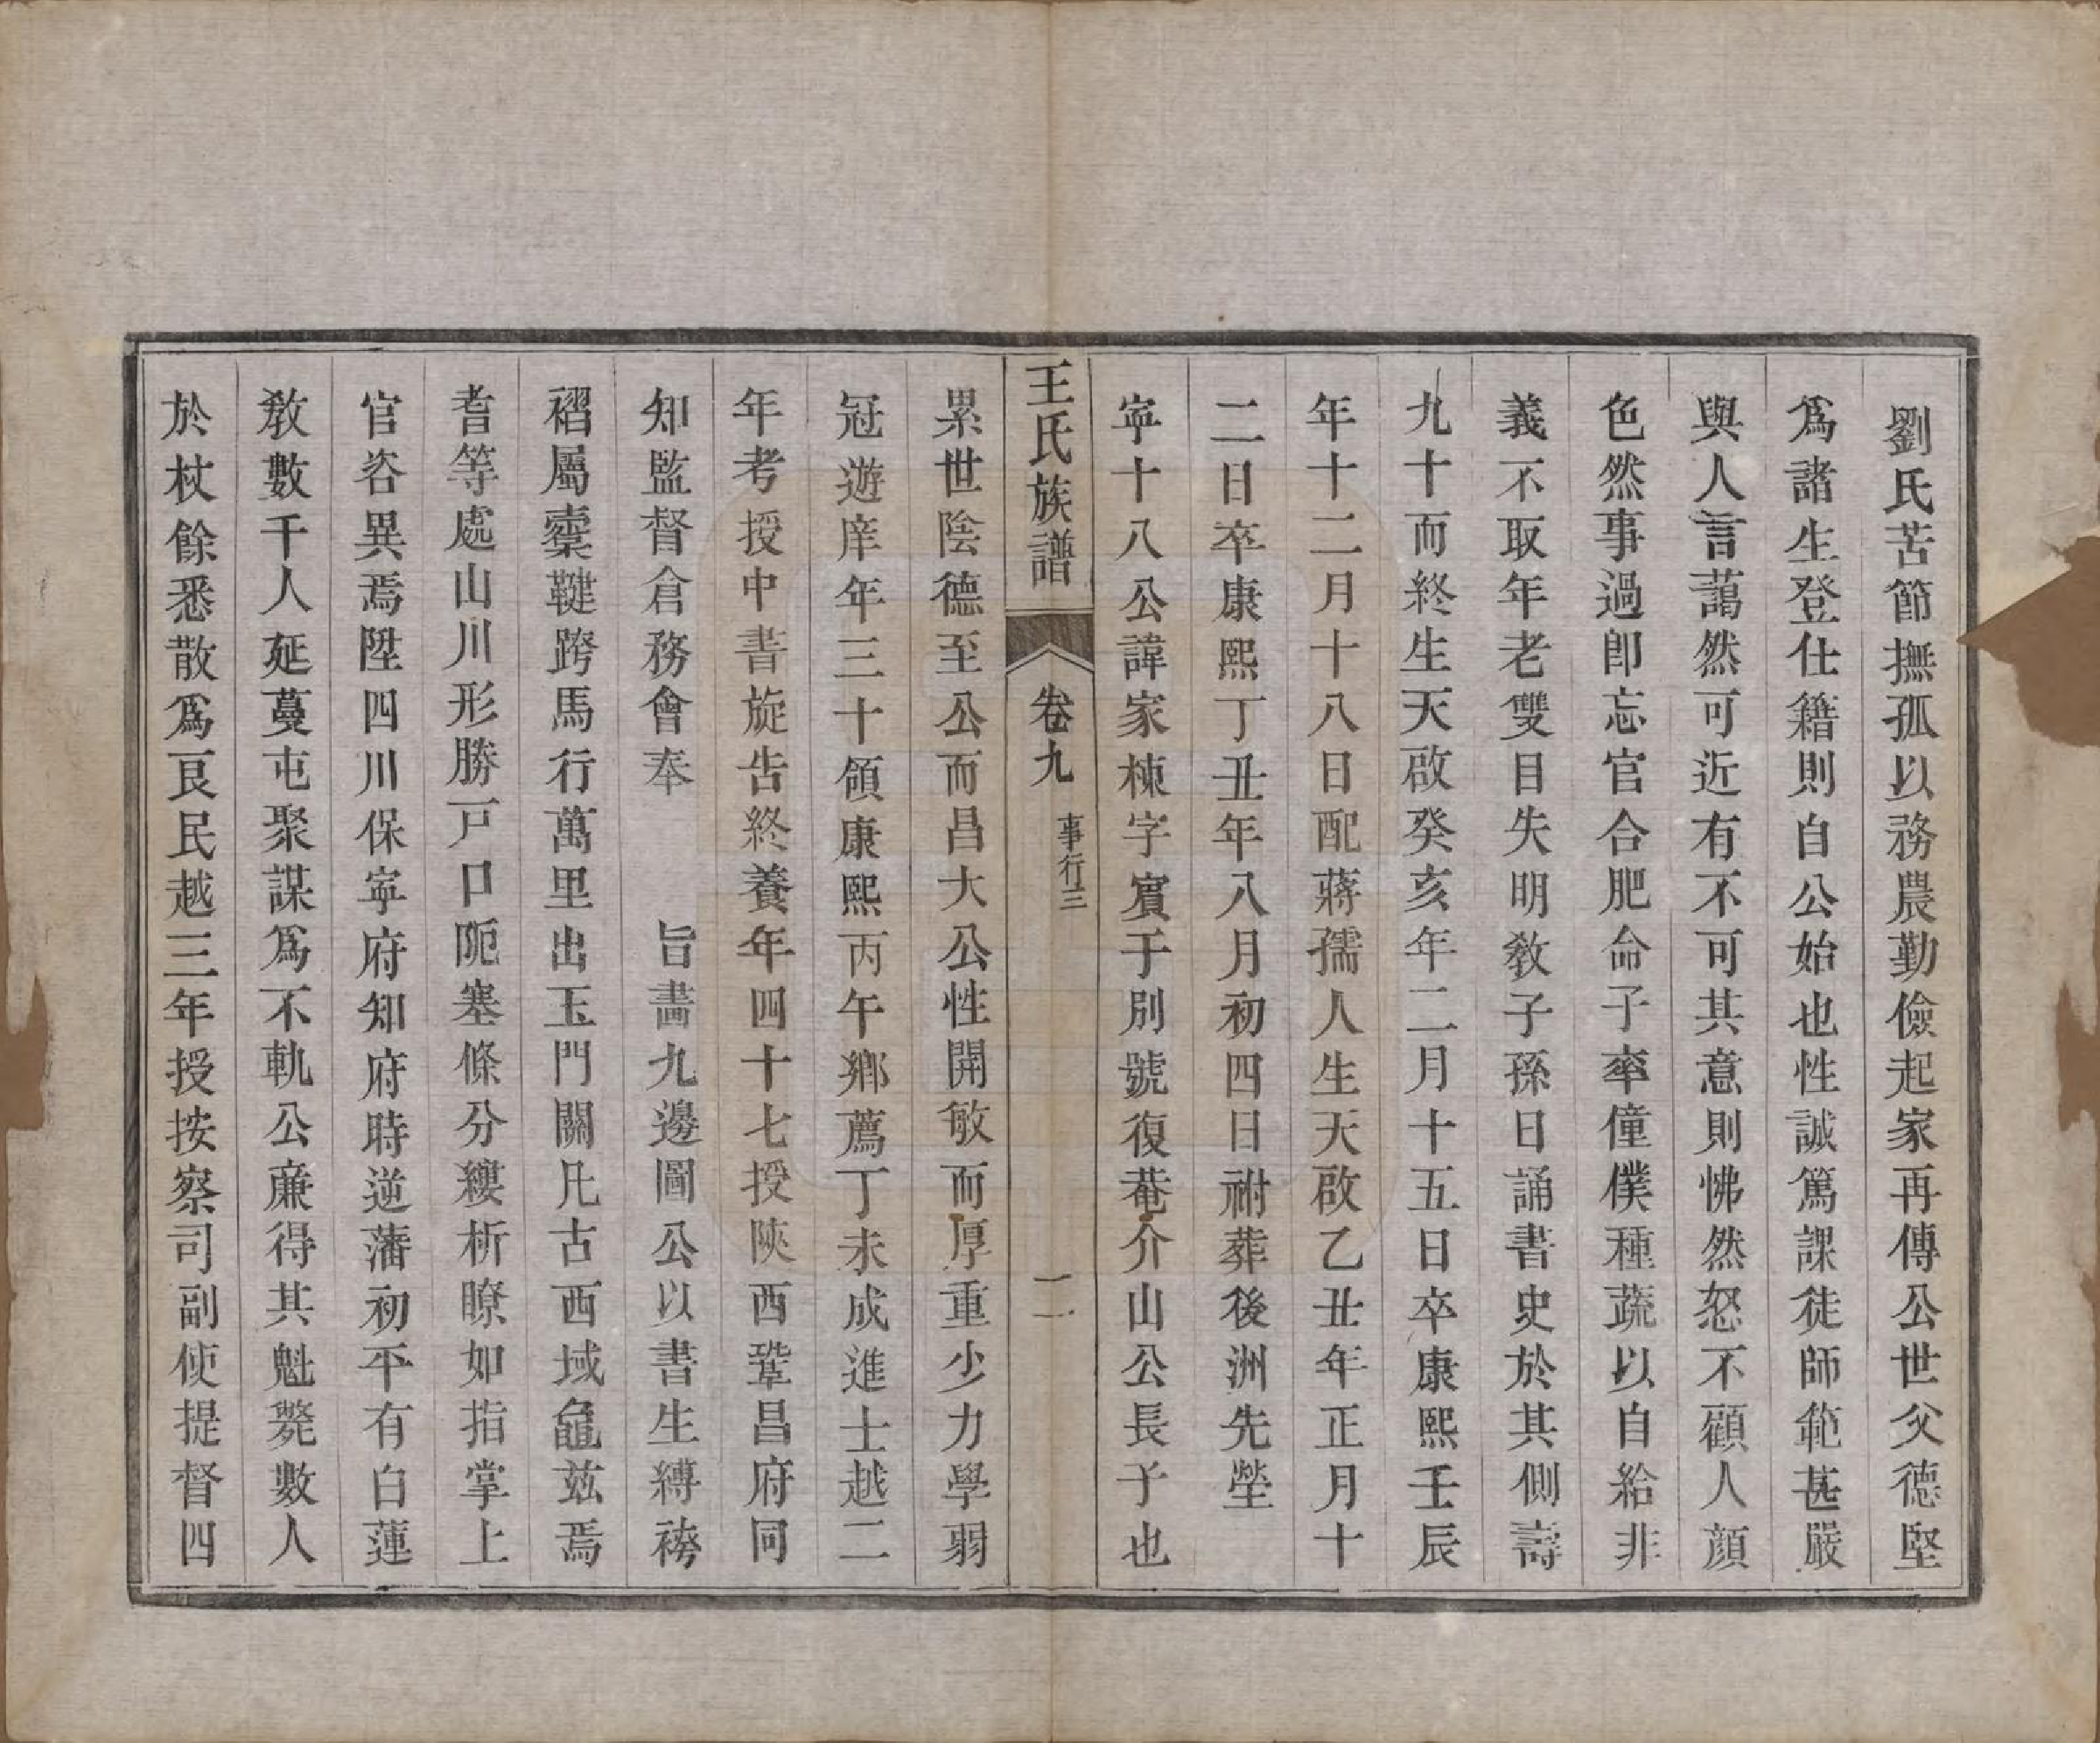 劉氏苦節撫孤以務農勤儉起家再傳公世父德堅
爲諸生登仕籍則自公始也性誠篤課徒師範甚嚴
與人言藹然可近有不可其意則怫然怒不顧人顔
色然事過卽忘官合肥命子率僮僕種蔬以自給非
義不取年老雙目失明敎子孫日誦書史於其側壽
九十而終生天啟癸亥年二月十五日卒康熙壬辰
年十二月十八日配蔣孺人生天啟乙丑年正月十
二日卒康熙丁丑年八月初四日祔葬後洲先塋
寧十八公諱家棟字賓于別號復菴介山公長子也
王氏族譜 卷九 事行三 二
累世陰德至公而昌大公性開敏而厚重少力學弱
冠遊庠年三十領康熙丙午鄉薦丁未成進士越二
年考授中書旋告終養年四十七授陝西鞏昌府同
知監督倉務會奉 旨畵九邊圖公以書生縛袴
褶屬櫜鞬跨馬行萬里出玉門關凡古西域龜茲焉
耆等處山川形勝戸口阨塞條分縷析瞭如指掌上
官咨異焉陞四川保寧府知府時逆藩初平有白蓮
敎數千人延蔓屯聚謀爲不軌公亷得其魁斃數人
於杖餘悉散爲良民越三年授按察司副使提督四